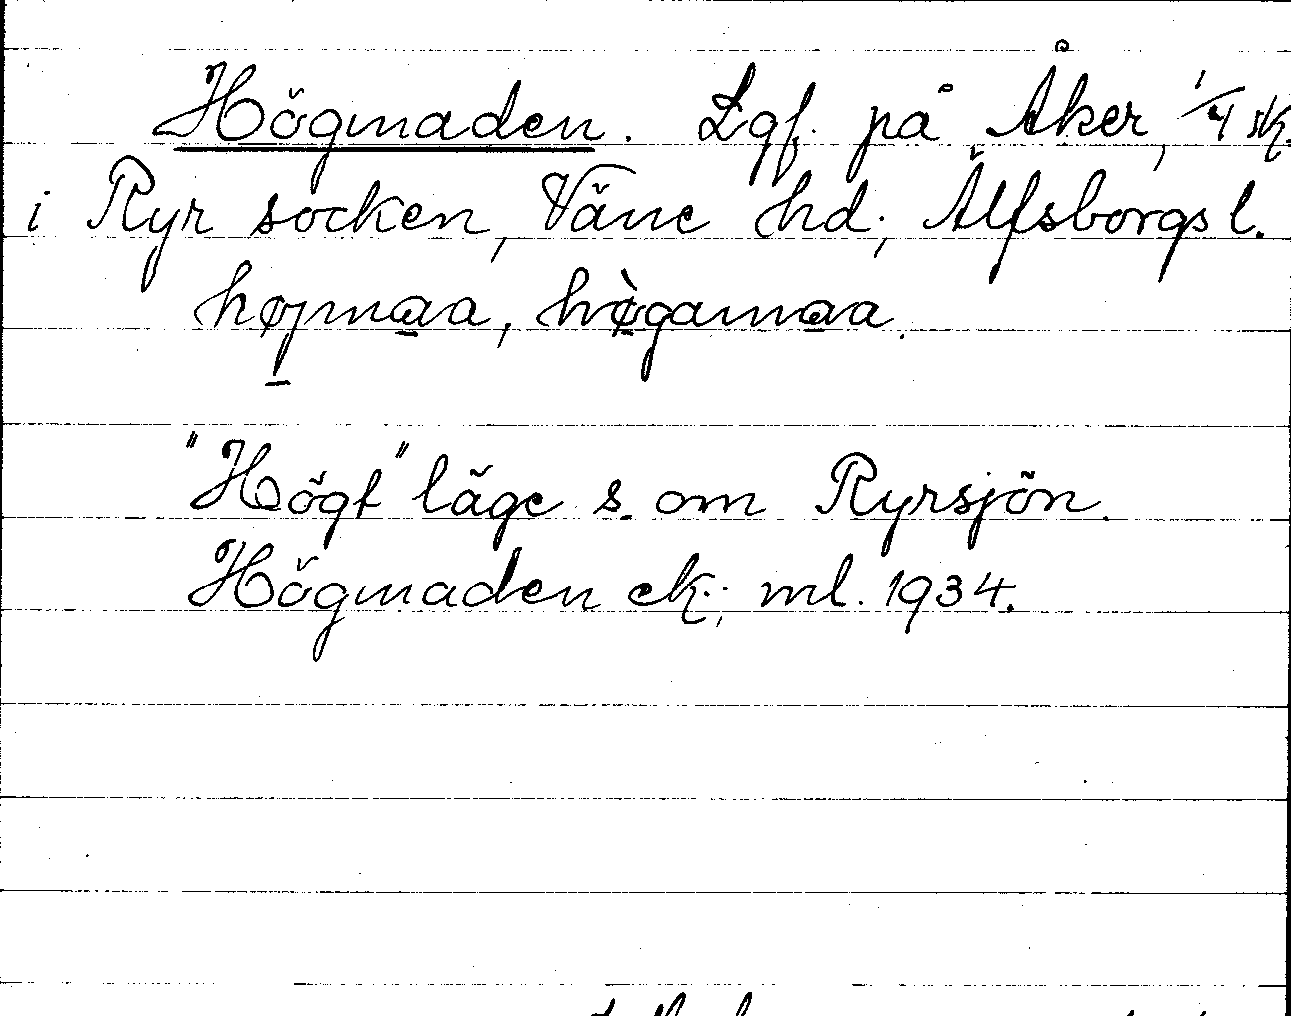 Högmaden. Lgf. på Åker, 1/4 sk.
i Ryr socken, Väne hd; Älfsborgs l.
højmaa, hø̀gamaa.
"Högt" läge s. om Ryrsjön.
Högmaden ek.; ml. 1934.